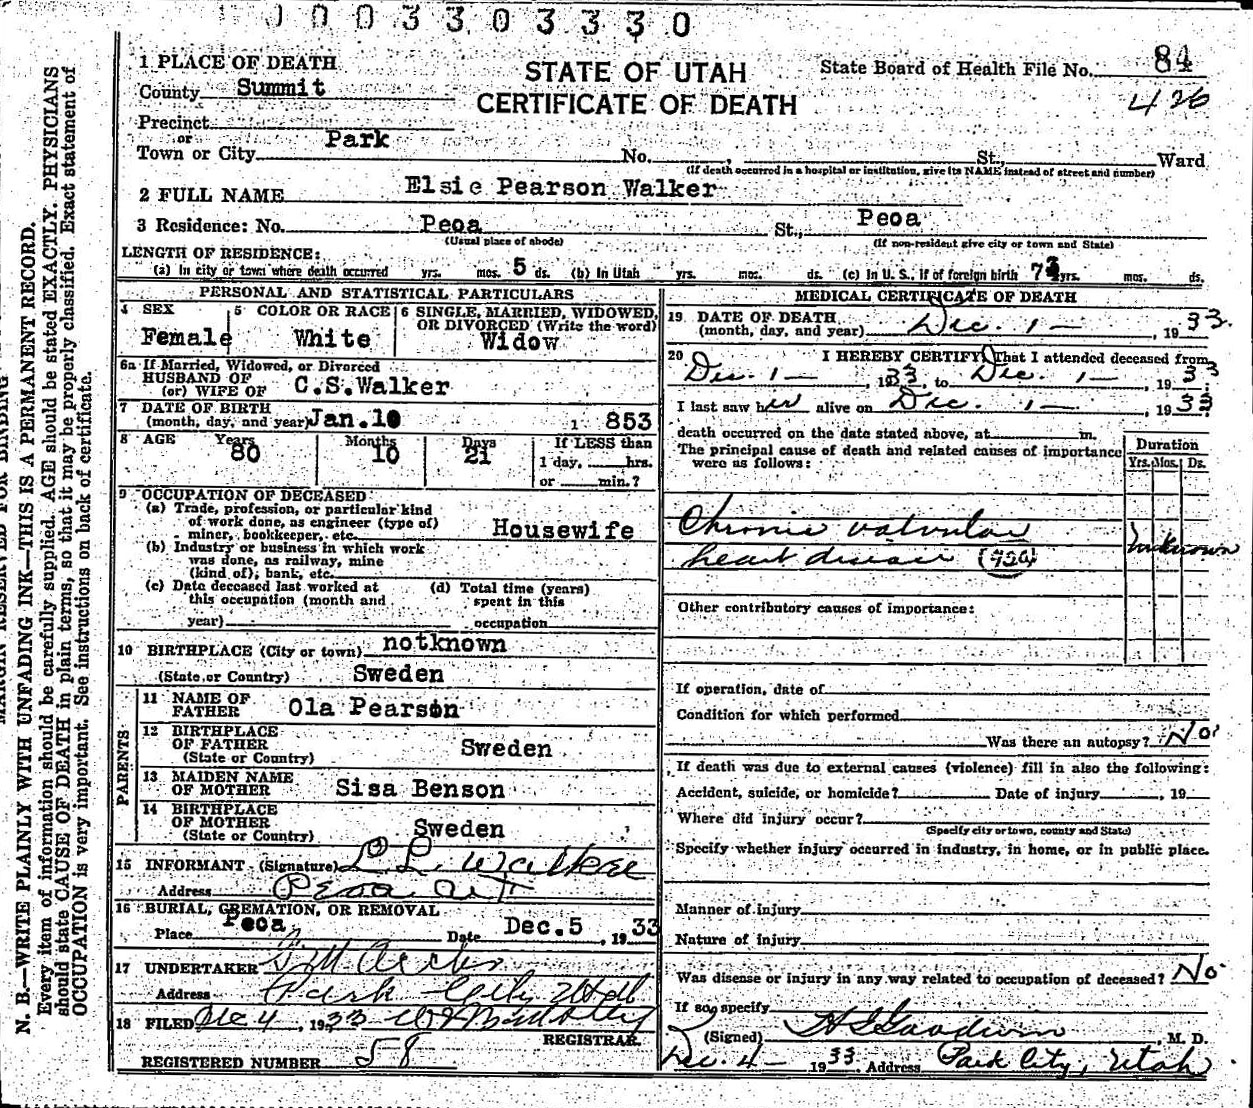 0003303330
1 PLACE OF DEATH
STATE OF UTAH
CERTIFICATE OF DEATH
State Board of Health File No. 84
426
County Summit
Precinct
or
Town or City Park No. , St., Ward
(If death occurred in a hospital or institution, give its NAME instead of street and number)
2 FULL NAME Elsie Pearson Walker
3 Residence: No. Peoa St., Peoa
(Usual place of abode) (If non-resident give city or town and State)
LENGTH OF RESIDENCE:
(a) In city or town where death occurred yrs. mos. 5 ds. (b) In Utah yrs. mos. ds. (c) In U. S., if of foreign birth 73 yrs. mos. ds.
PERSONAL AND STATISTICAL PARTICULARS
4 SEX Female
5 COLOR OR RACE White
6 SINGLE, MARRIED, WIDOWED, OR DIVORCED (Write the word) Widow
6a If Married, Widowed, or Divorced
HUSBAND OF
(or) WIFE OF C.S.Walker
7 DATE OF BIRTH
(month, day, and year) Jan.10 1 853
8 AGE Years 80 Months 10 Days 21 If LESS than
1 day, hrs.
or min.?
9 OCCUPATION OF DECEASED
(a) Trade, profession, or particular kind
of work done, as engineer (type of)
miner, bookkeeper, etc. Housewife
(b) Industry or business in which work
was done, as railway, mine
(kind of); bank, etc.
(c) Date deceased last worked at
this occupation (month and
year)
(d) Total time (years)
spent in this
occupation
10 BIRTHPLACE (City or town) notknown
(State or Country) Sweden
PARENTS
11 NAME OF
FATHER Ola Pearson
12 BIRTHPLACE
OF FATHER
(State or Country) Sweden
13 MAIDEN NAME
OF MOTHER Sisa Benson
14 BIRTHPLACE
OF MOTHER
(State or Country) Sweden
15 INFORMANT (Signature) L L Walker
Address Peoa Ut
16 BURIAL, CREMATION, OR REMOVAL
Place Peoa Date Dec.5 , 1933
17 UNDERTAKER
Address Park City Utah
18 FILED Dec 4 , 1933
REGISTRAR.
REGISTERED NUMBER 58
MEDICAL CERTIFICATE OF DEATH
19 DATE OF DEATH
(month, day, and year) Dec. 1 — , 1933.
20 I HEREBY CERTIFY, That I attended deceased from
Dec. 1 — , 1933, to Dec. 1 — , 1933
I last saw her alive on Dec. 1 — , 1933
death occurred on the date stated above, at m.
The principal cause of death and related causes of importance
were as follows:
Duration
Yrs. Mos. Ds.
Chronic valvular
heart disease (92a)
Unknown
Other contributory causes of importance:
If operation, date of
Condition for which performed
Was there an autopsy? No
If death was due to external causes (violence) fill in also the following:
Accident, suicide, or homicide? Date of injury , 19
Where did injury occur?
(Specify city or town, county and State)
Specify whether injury occurred in industry, in home, or in public place.
Manner of injury
Nature of injury
Was disease or injury in any way related to occupation of deceased? No
If so, specify
(Signed) H S Goodwin , M. D.
Dec. 4 — 1933. Address Park City, Utah
N. B.—WRITE PLAINLY WITH UNFADING INK—THIS IS A PERMANENT RECORD.
Every item of information should be carefully supplied. AGE should be stated EXACTLY. PHYSICIANS
should state CAUSE OF DEATH in plain terms, so that it may be properly classified. Exact statement of
OCCUPATION is very important. See instructions on back of certificate.